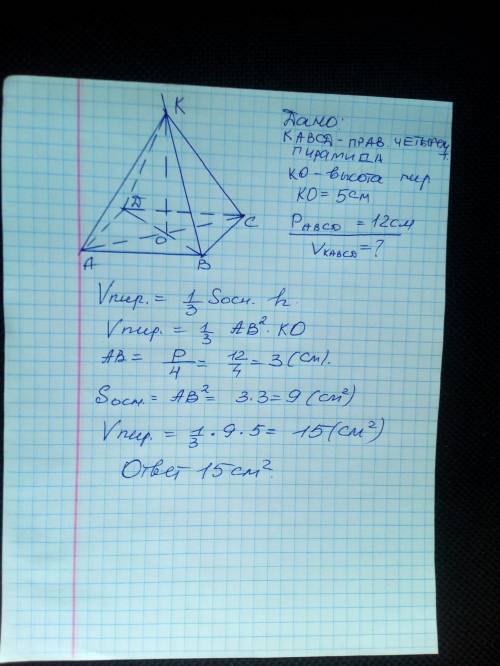 K
Дано:
KABCD - прав. четырёху
пирамида
KO - высота пир
KO = 5 см
P ABCD = 12 см
V KABCD = ?
D
C
O
A
B
Vпир. = 1/3 Sосн. h.
Vпир. = 1/3 AB² · KO
AB = P/4 = 12/4 = 3 (см).
Sосн. = AB² = 3 · 3 = 9 (см²)
Vпир. = 1/3 · 9 · 5 = 15 (см²)
Ответ 15 см².